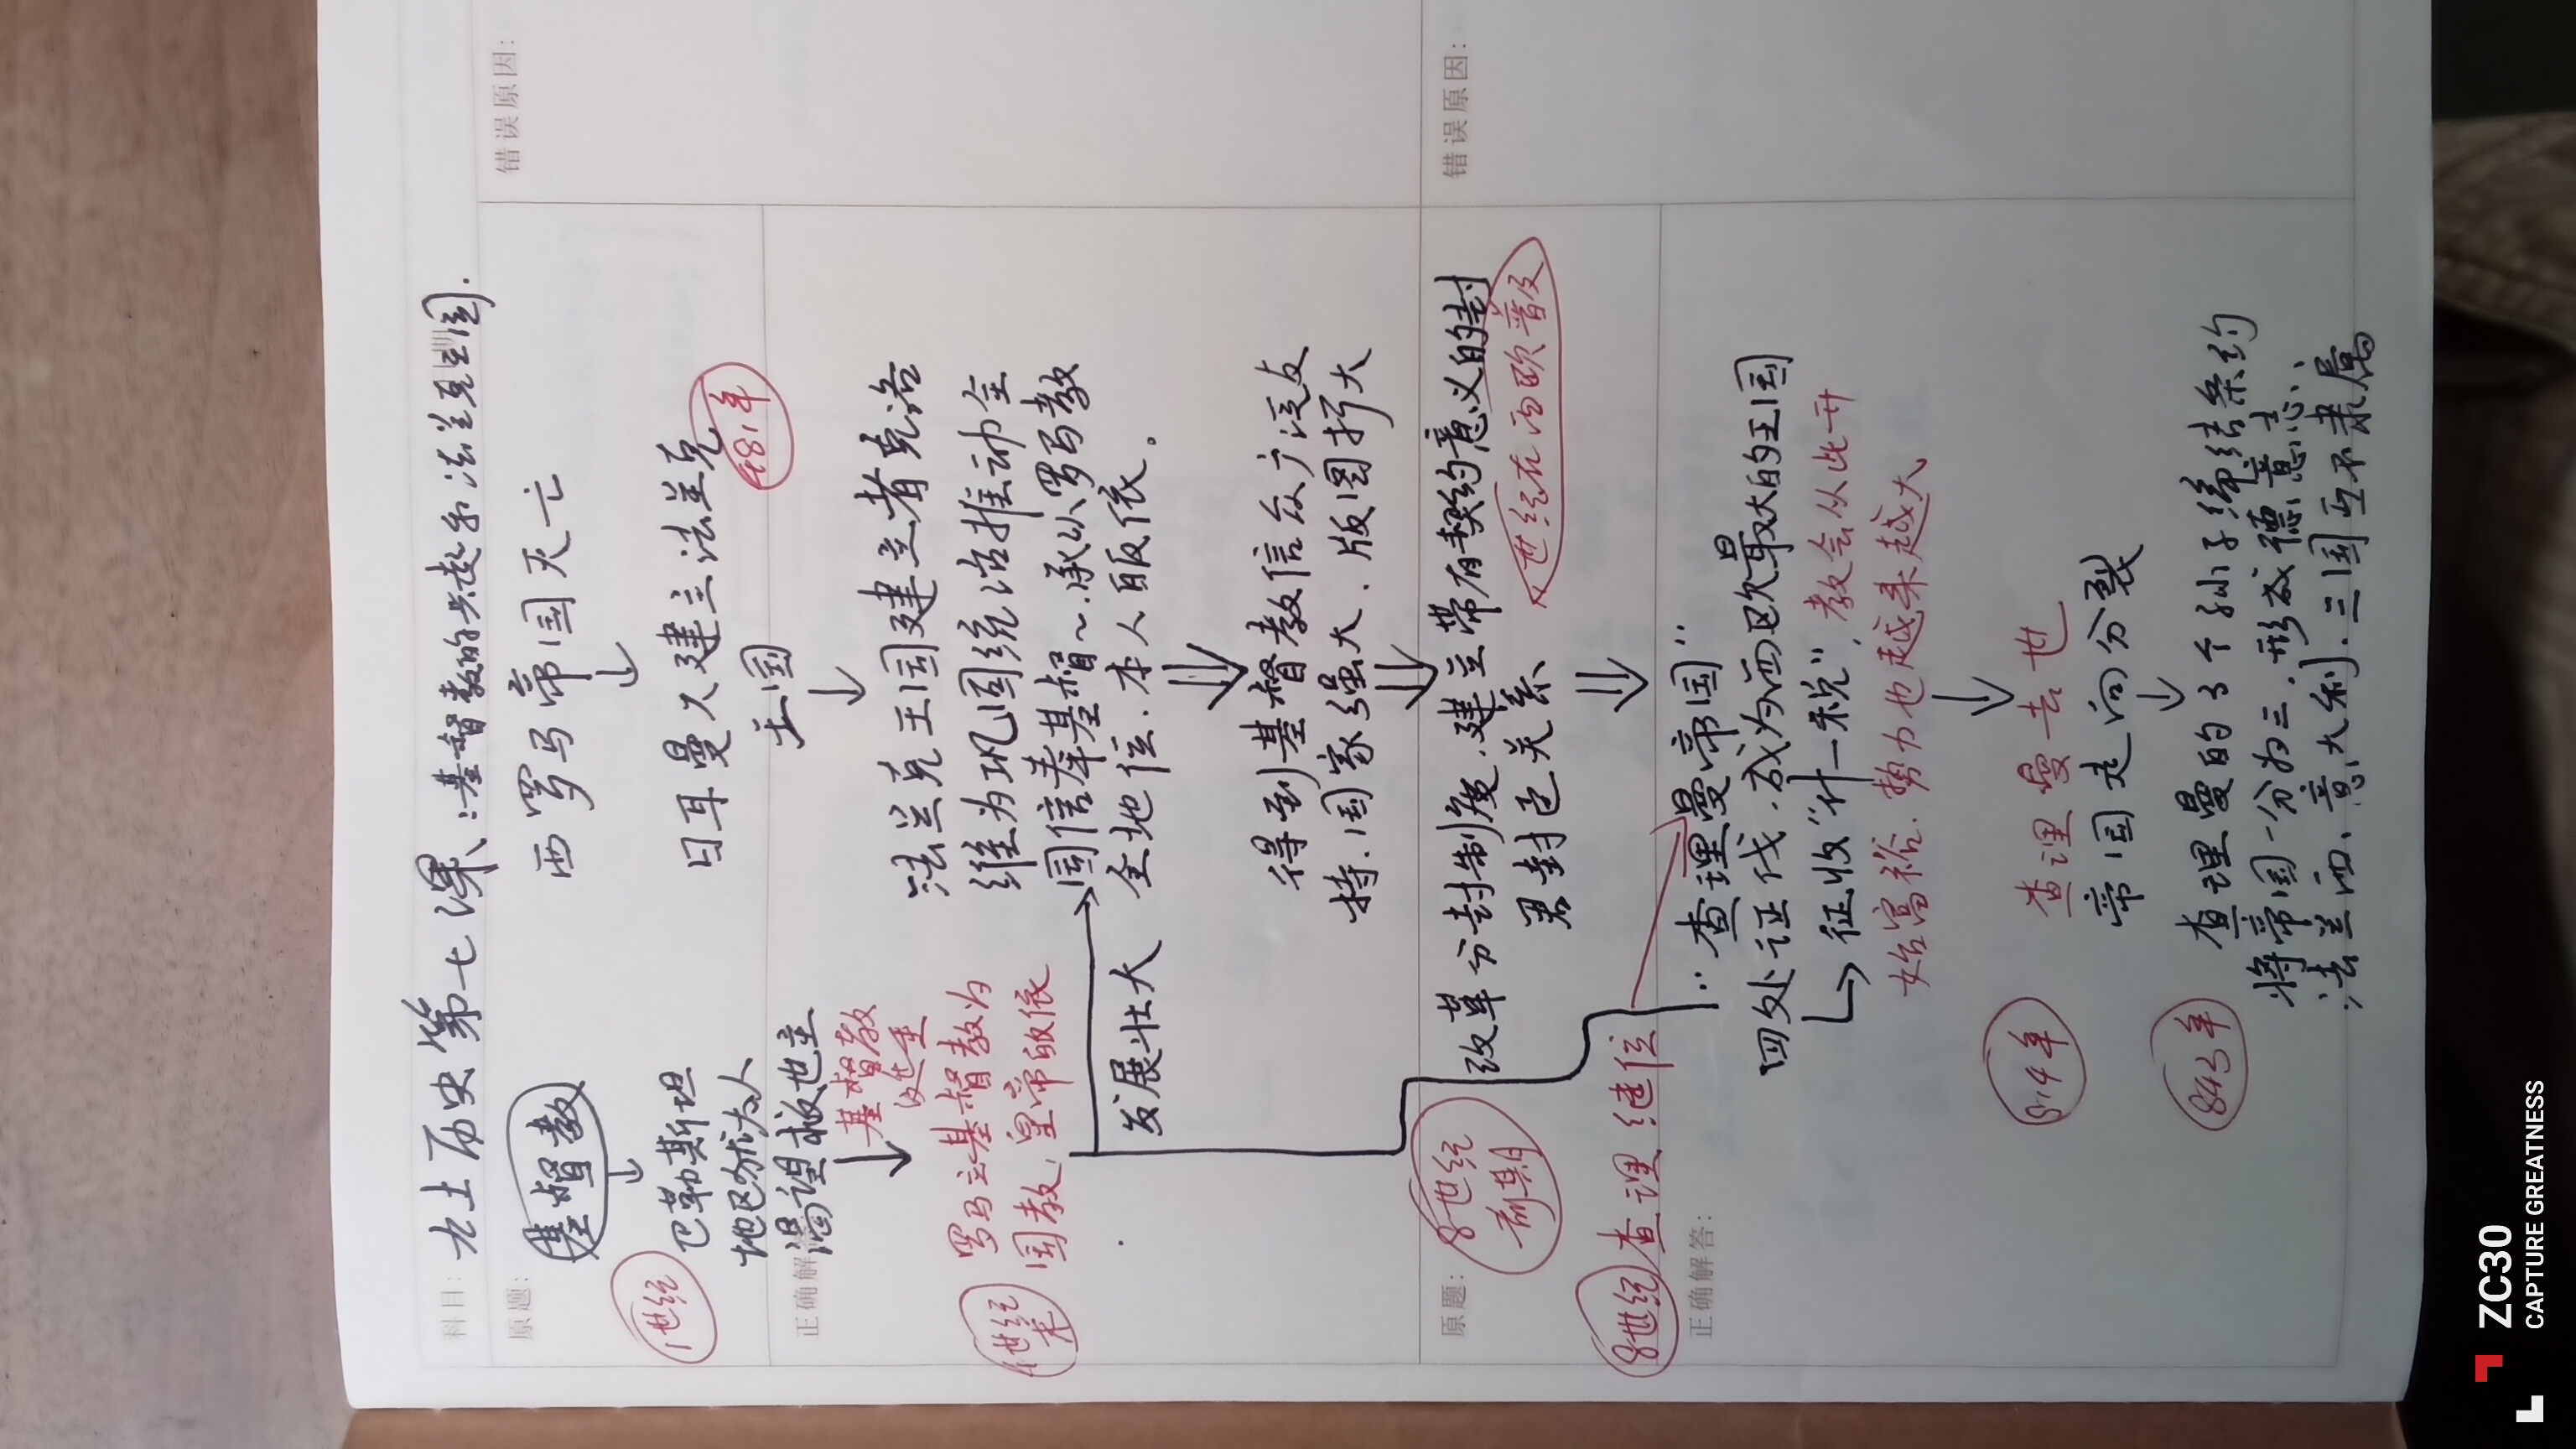 科目：九上历史第七课、基督教的兴起和法兰克王国.
原题：
错误原因：
基督教
西罗马帝国灭亡
↓
↓
1世纪
巴勒斯坦
地区犹太人
渴望救世主
日耳曼人建立法兰克
王国
481年
正确解答
↓
基督教
诞生
↓
4世纪
末
罗马立基督教为
国教，皇帝皈依
法兰克王国建立者克洛
维为巩固统治推动全
国信奉基督~.承认罗马教
会地位.本人皈依。
发展壮大
⇓
得到基督教信众广泛支
持.国家强大.版图扩大
⇓
原题：
错误原因：
8世纪
前期
改革分封制度.建立带有契约意义的封
君封臣关系
9世纪在西欧普及
⇓
8世纪
查理继位
正确解答：
∴查理曼帝国"
四处征伐.成为西欧最大的王国
↳征收"什一税".教会从此开
始富裕.势力也越来越大
↓
814年
查理曼去世
帝国走向分裂
↓
843年
查理曼的3个孙子缔结条约
将帝国一分为三.形成德意志、
法兰西、意大利.三国互不隶属
ZC30
CAPTURE GREATNESS